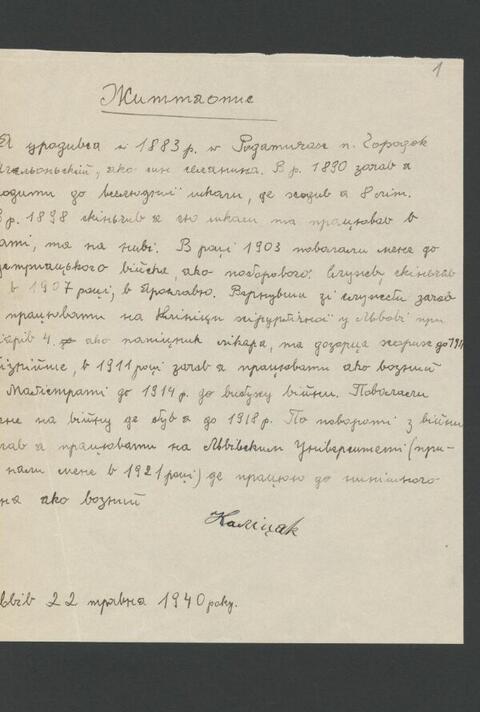 1
Життєпис
Я уродився в 1883 р. в Родатичах п. Городок
ягельонський, яко син селянина. В р. 1890 зачав я
ходити до вселюдної школи, де ходив я 8 літ.
В р. 1898 скінчив я сю школу та працював в
хаті, та на ниві. В році 1903 повалали мене до
австрпацького війска, яко поборового. Службу скінчив
в 1907 році, в Ярославю. Вернувши зі служби зачав
працювати на Клініци хірургічної у Львові при
4. яко поміцник лікара, та дозорца хорих до 1911
пізнійше, в 1911 році зачав я працювати яко возний
Магістраті до 1914 р. до вибуху війни. Повалали
мене на війну де був я до 1918 р. По повороті з війни
зачав я працювати на Львівским Університеті (при-
няли мене в 1921 році) де працюю до нинішного
дня яко возний
Каліцак
Львів 22 травня 1940 року.